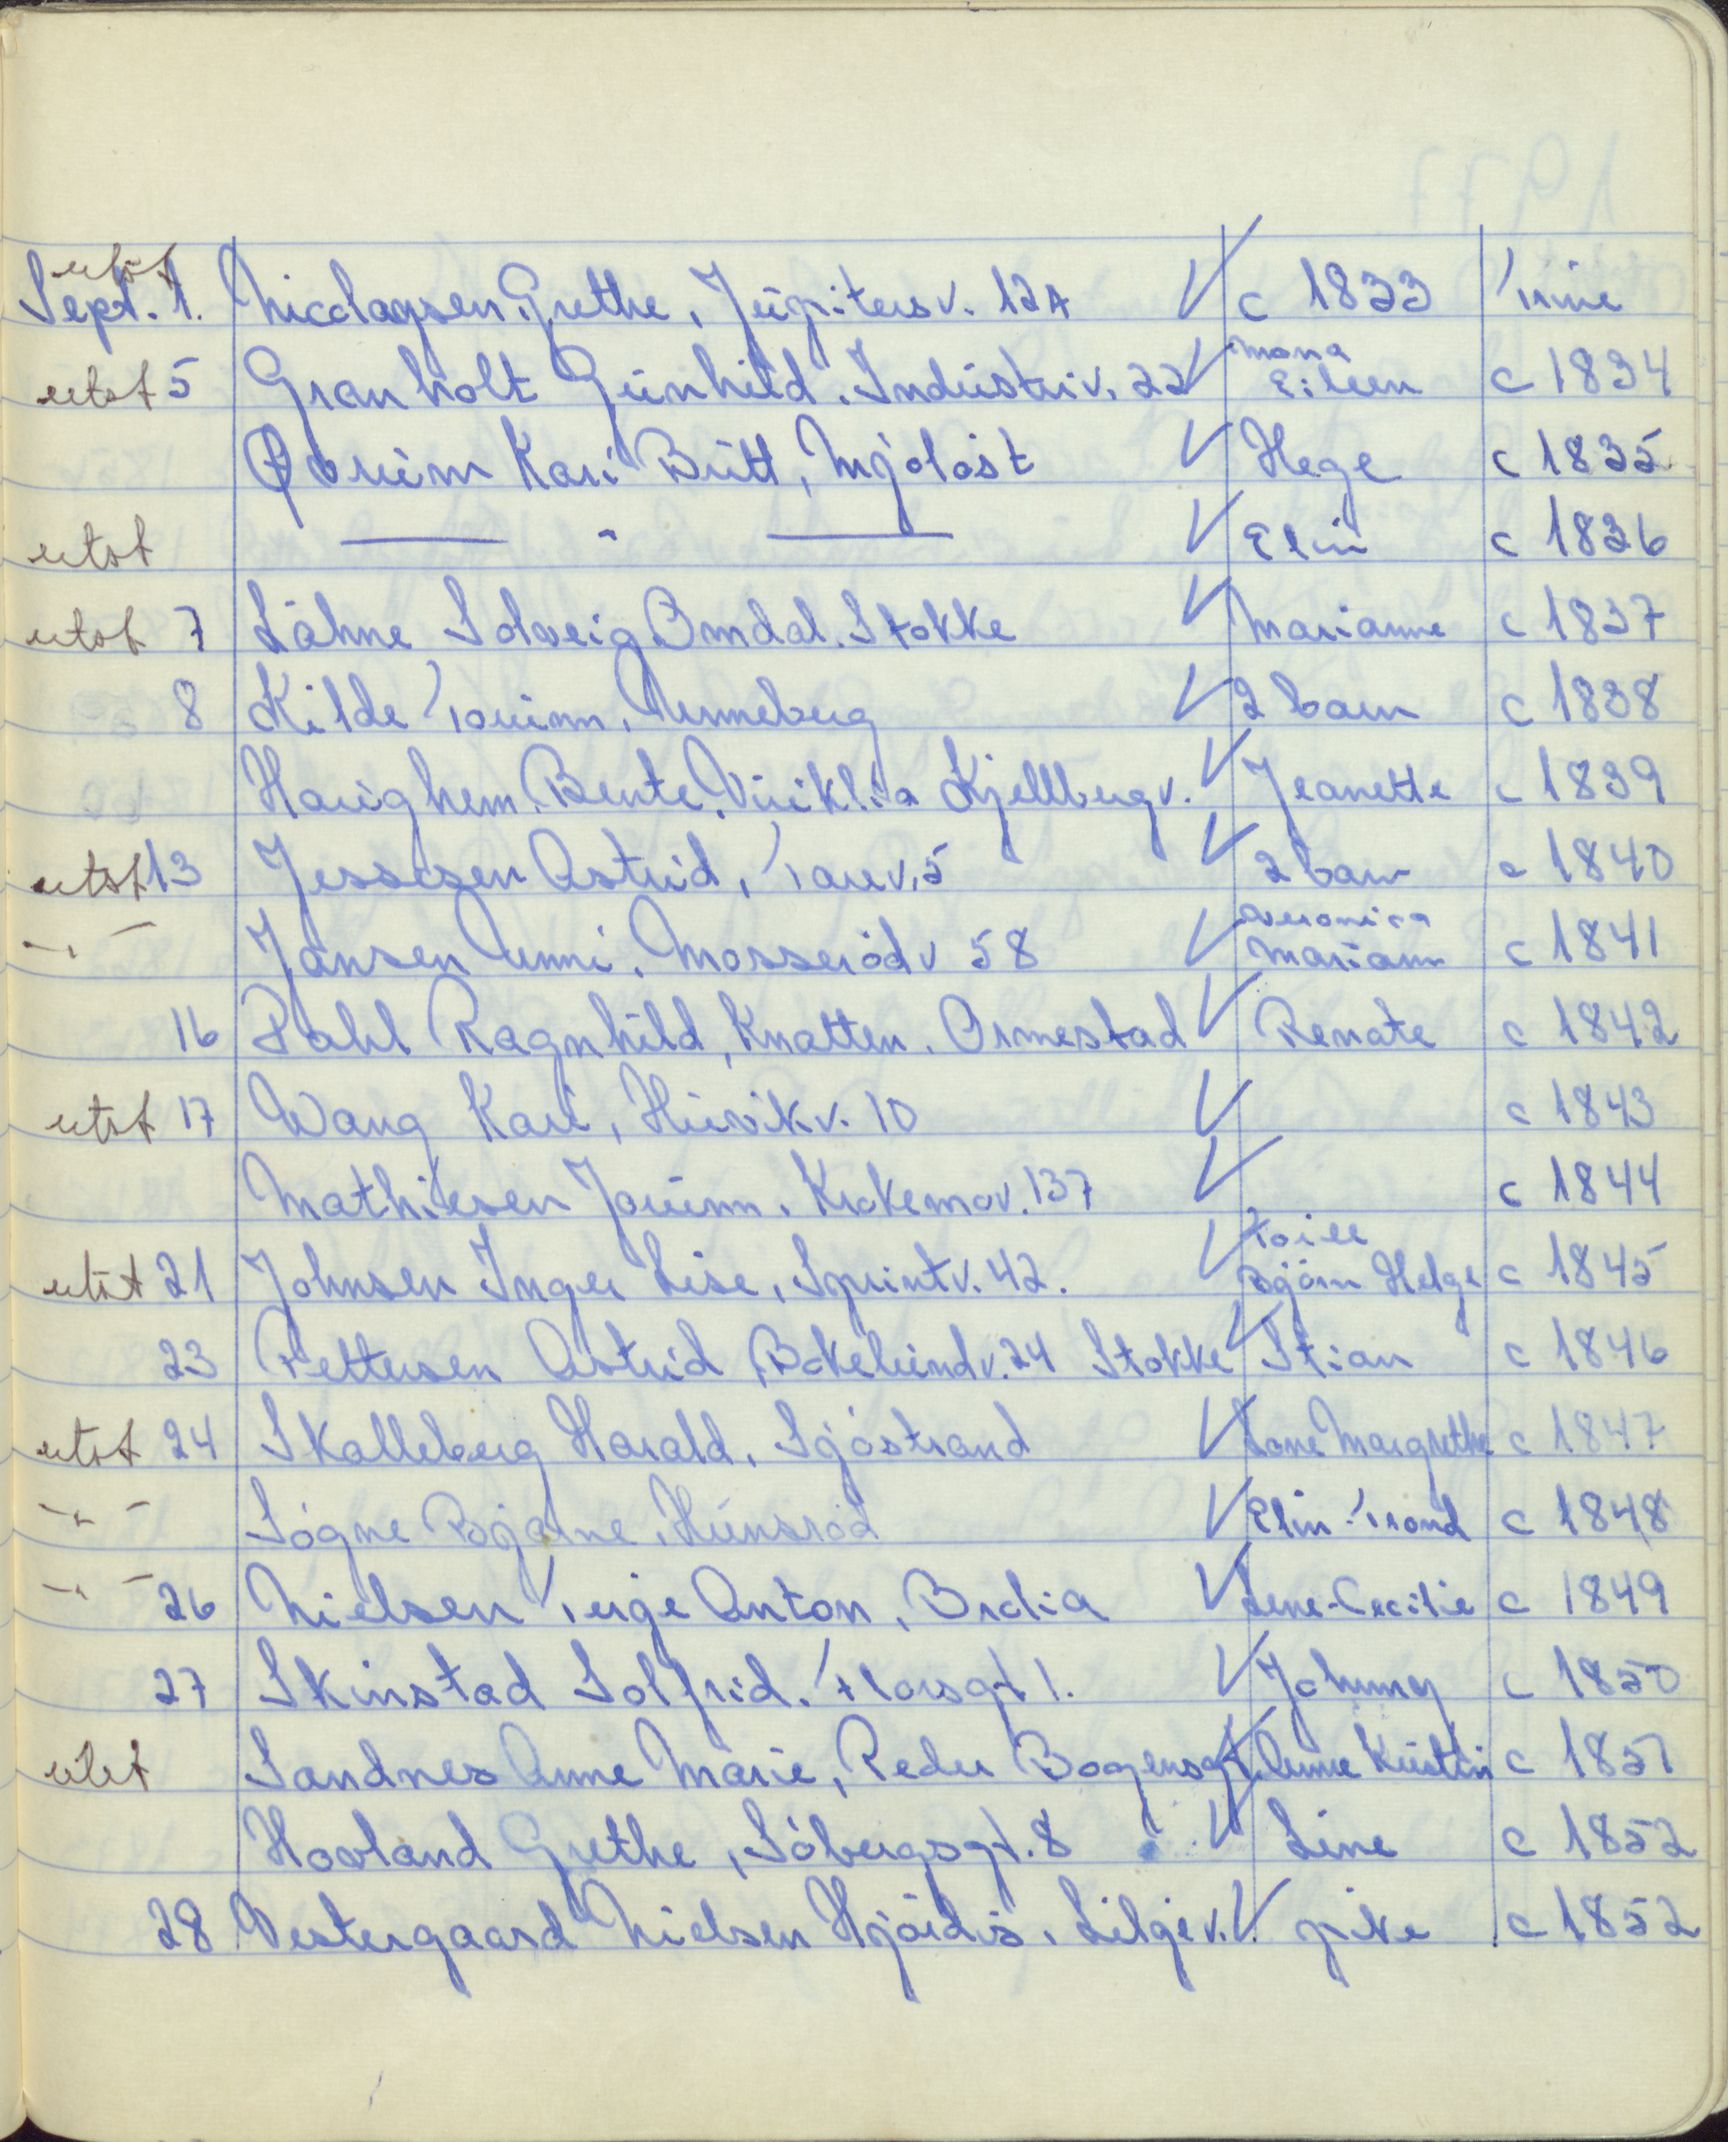 utst
Sept. 1. Nicolaysen, Grethe, Jupitersv. 12A ✓ c 1833 Trine
utst 5 Granholt Gunhild. Industriv. 22 ✓ Mona Eileen c 1834
Øvrum Kari Britt, Mjølöst ✓ Hege c 1835
utst — " — ✓ Elin c 1836
utst 7 Løhne Solveig Omdal. Stokke ✓ Marianne c 1837
8 Kilde Torunn, Unneberg ✓ 2 barn c 1838
Haughem, Bente, Virikl:a Kjellbergv. ✓ Jeanette c 1839
utst 13 Jessesen Astrid, Tarev. 5 ✓ 2 barn c 1840
— " — Jansen Unni, Mosserödv 58 ✓ Veronica Mariann c 1841
16 Dahl Ragnhild, Knatten. Ormestad ✓ Renate c 1842
utst 17 Wang Kari, Huvikv. 10 ✓ c 1843
Mathiesen Jorunn, Krokemov. 137 ✓ c 1844
utst 21 Johnsen Inger Lise, Sprintv. 42. ✓ Toril Bjørn Helge c 1845
23 Pettersen Astrid, Bokelundv. 24 Stokke ✓ Stian c 1846
utst 24 Skalleberg Harald, Sjöstrand ✓ Lone Margrethe c 1847
— " — Sögne Bjarne, Hunsröd ✓ Elin - Trond c 1848
— " — 26 Nielsen Terje Anton, Brolia ✓ Lene-Cecilie c 1849
27 Skinstad Solfrid. Thorsgt 1. ✓ Johnny c 1850
utst Sandnes Anne Marie, Peder Bogensgt. ✓ Anne Kirstin c 1851
Hovland Grethe, Söbergsgt. 8 ✓ Line c 1852
28 Vestergaard Nielsen Hjördis, Liljev. ✓ pike c 1852